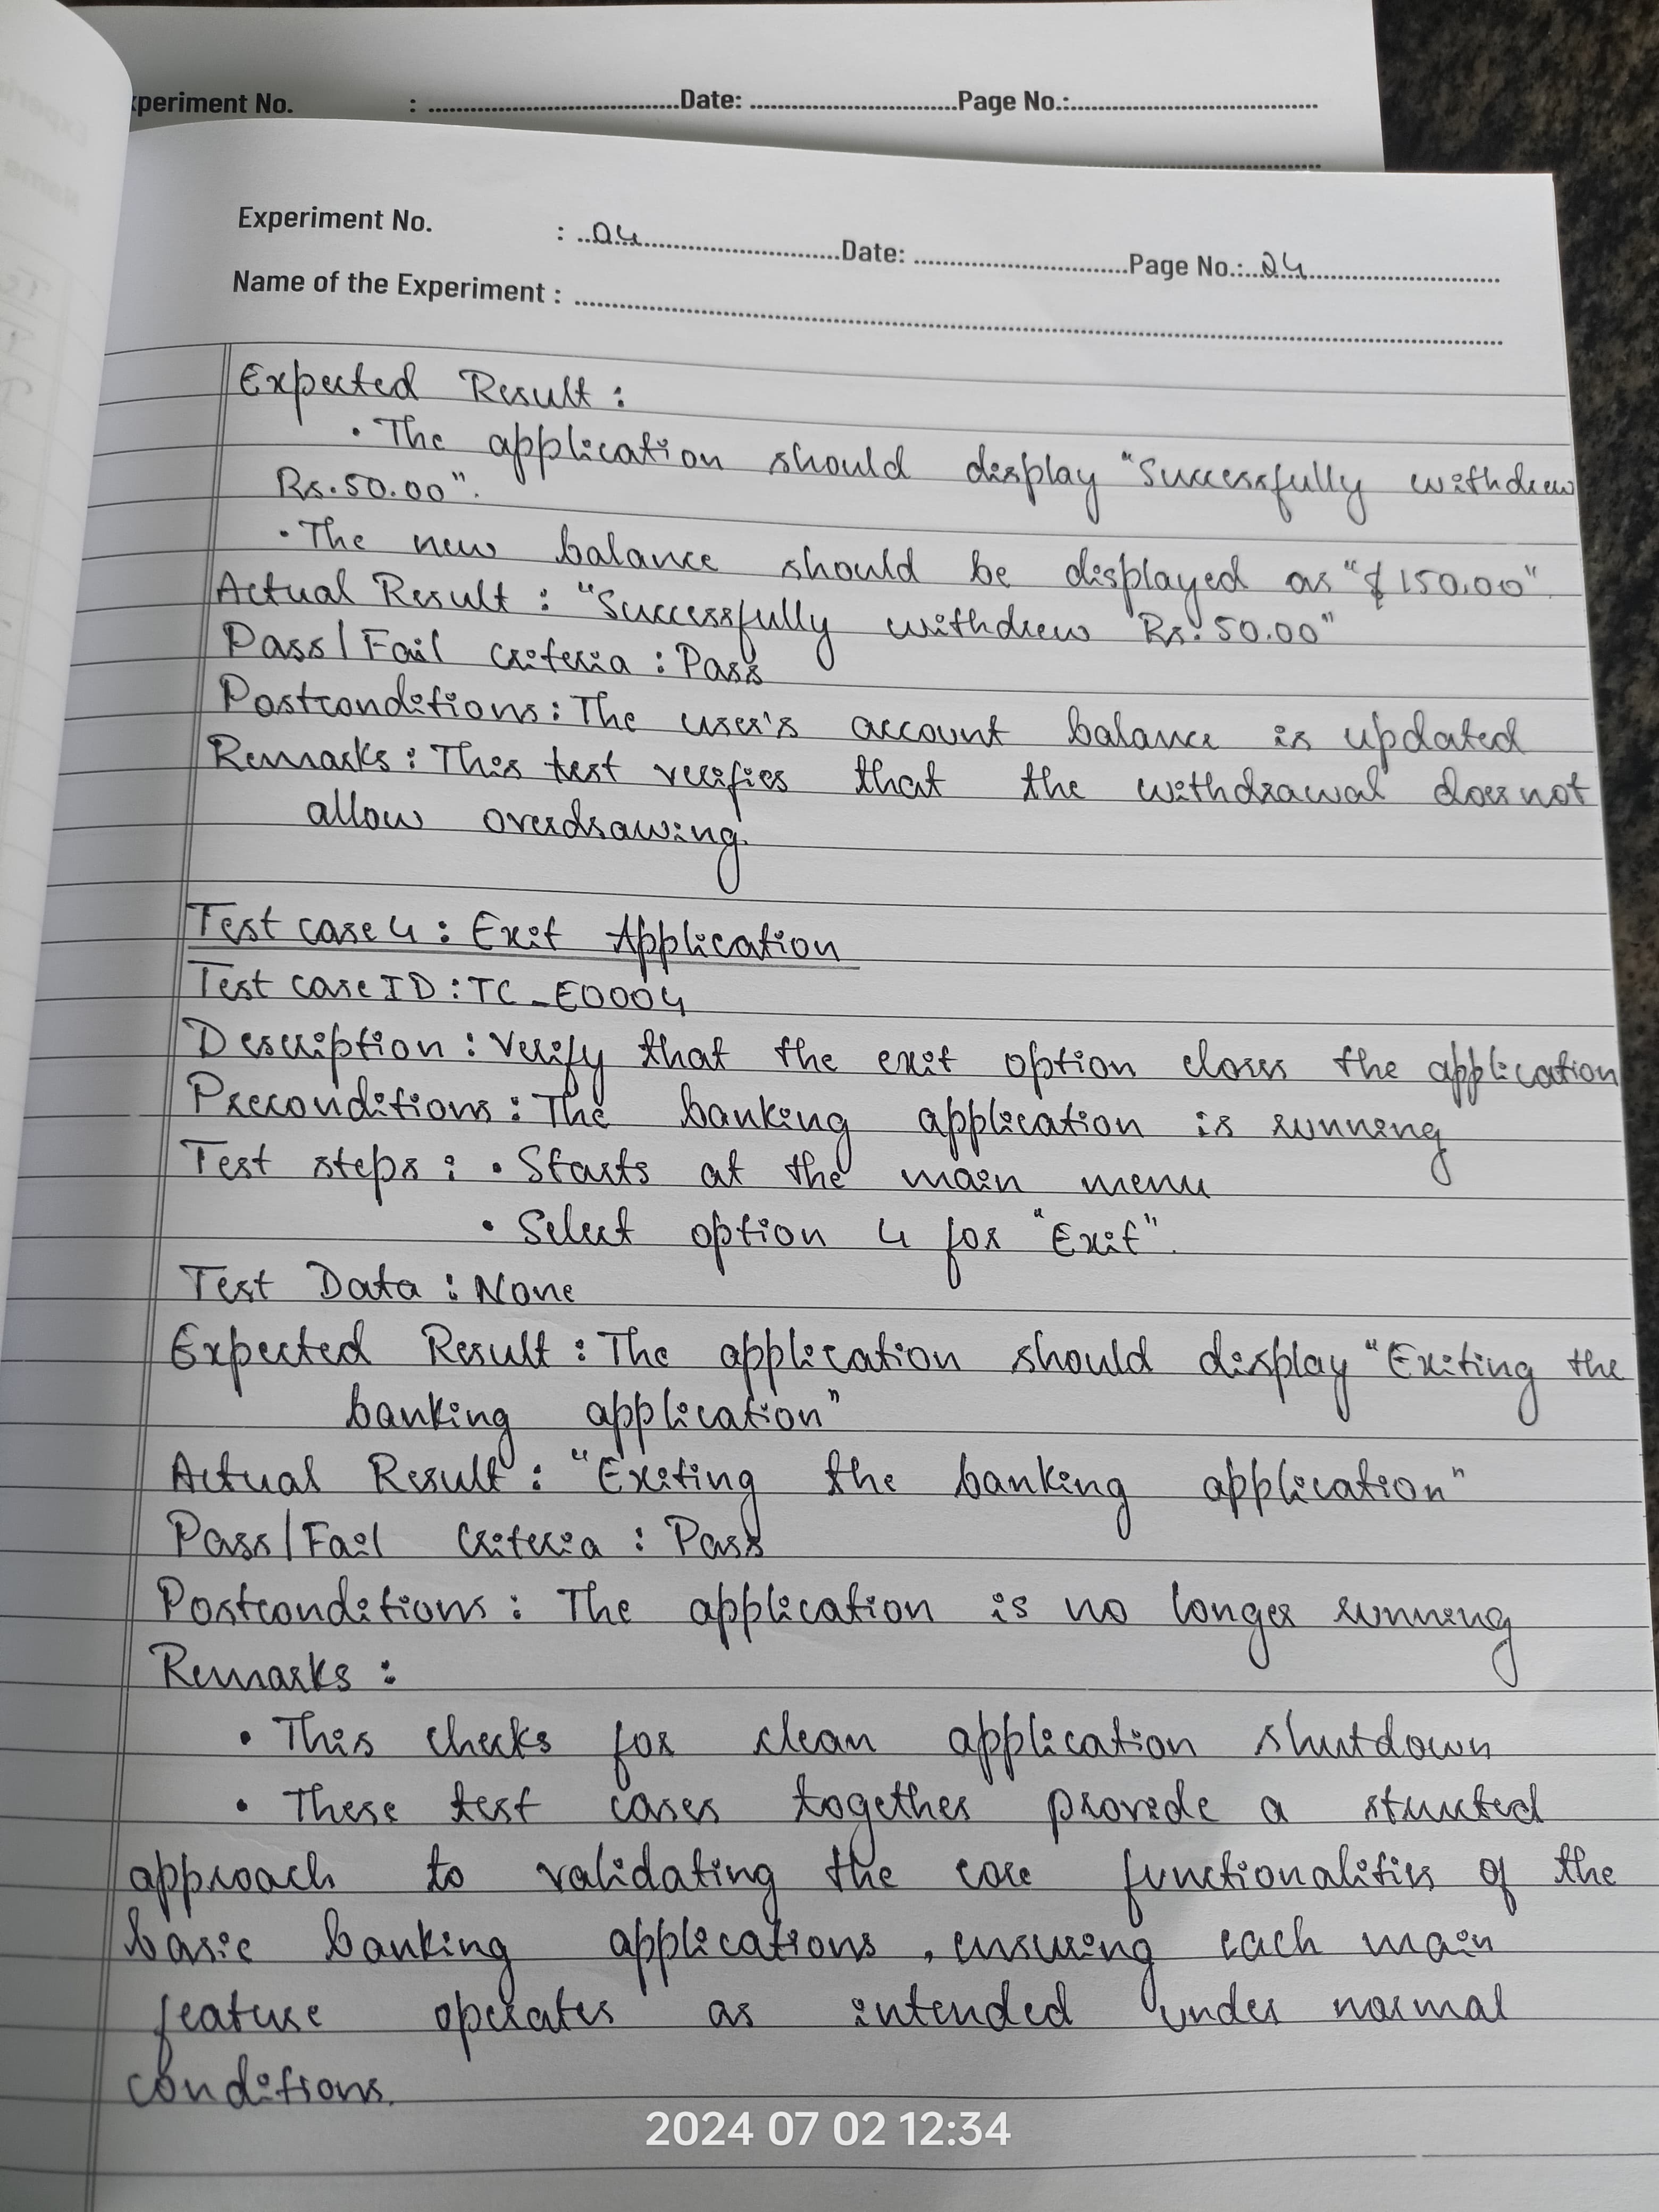 xperiment No. : Date: Page No.:
Experiment No. : 04 Date: Page No.: 24
Name of the Experiment :
Expected Result :
• The application should display "Successfully withdrew
Rs.50.00".
• The new balance should be displayed as "$150.00".
Actual Result : "Successfully withdrew Rs.50.00"
Pass/Fail criteria : Pass
Postconditions : The user's account balance is updated
Remarks : This test verifies that the withdrawal does not
allow overdrawing.
Test case 4 : Exit Application
Test case ID : TC_E0004
Description : Verify that the exit option closes the application
Preconditions : The banking application is running
Test steps : • Starts at the main menu
• Select option 4 for "Exit".
Test Data : None
Expected Result : The application should display "Exiting the
banking application"
Actual Result : "Exiting the banking application"
Pass/Fail Criteria : Pass
Postconditions : The application is no longer running
Remarks :
• This checks for clean application shutdown
• These test cases together provide a structed
approach to validating the core functionalities of the
basic banking applications, ensuring each main
feature operates as intended under normal
conditions.
2024 07 02 12:34